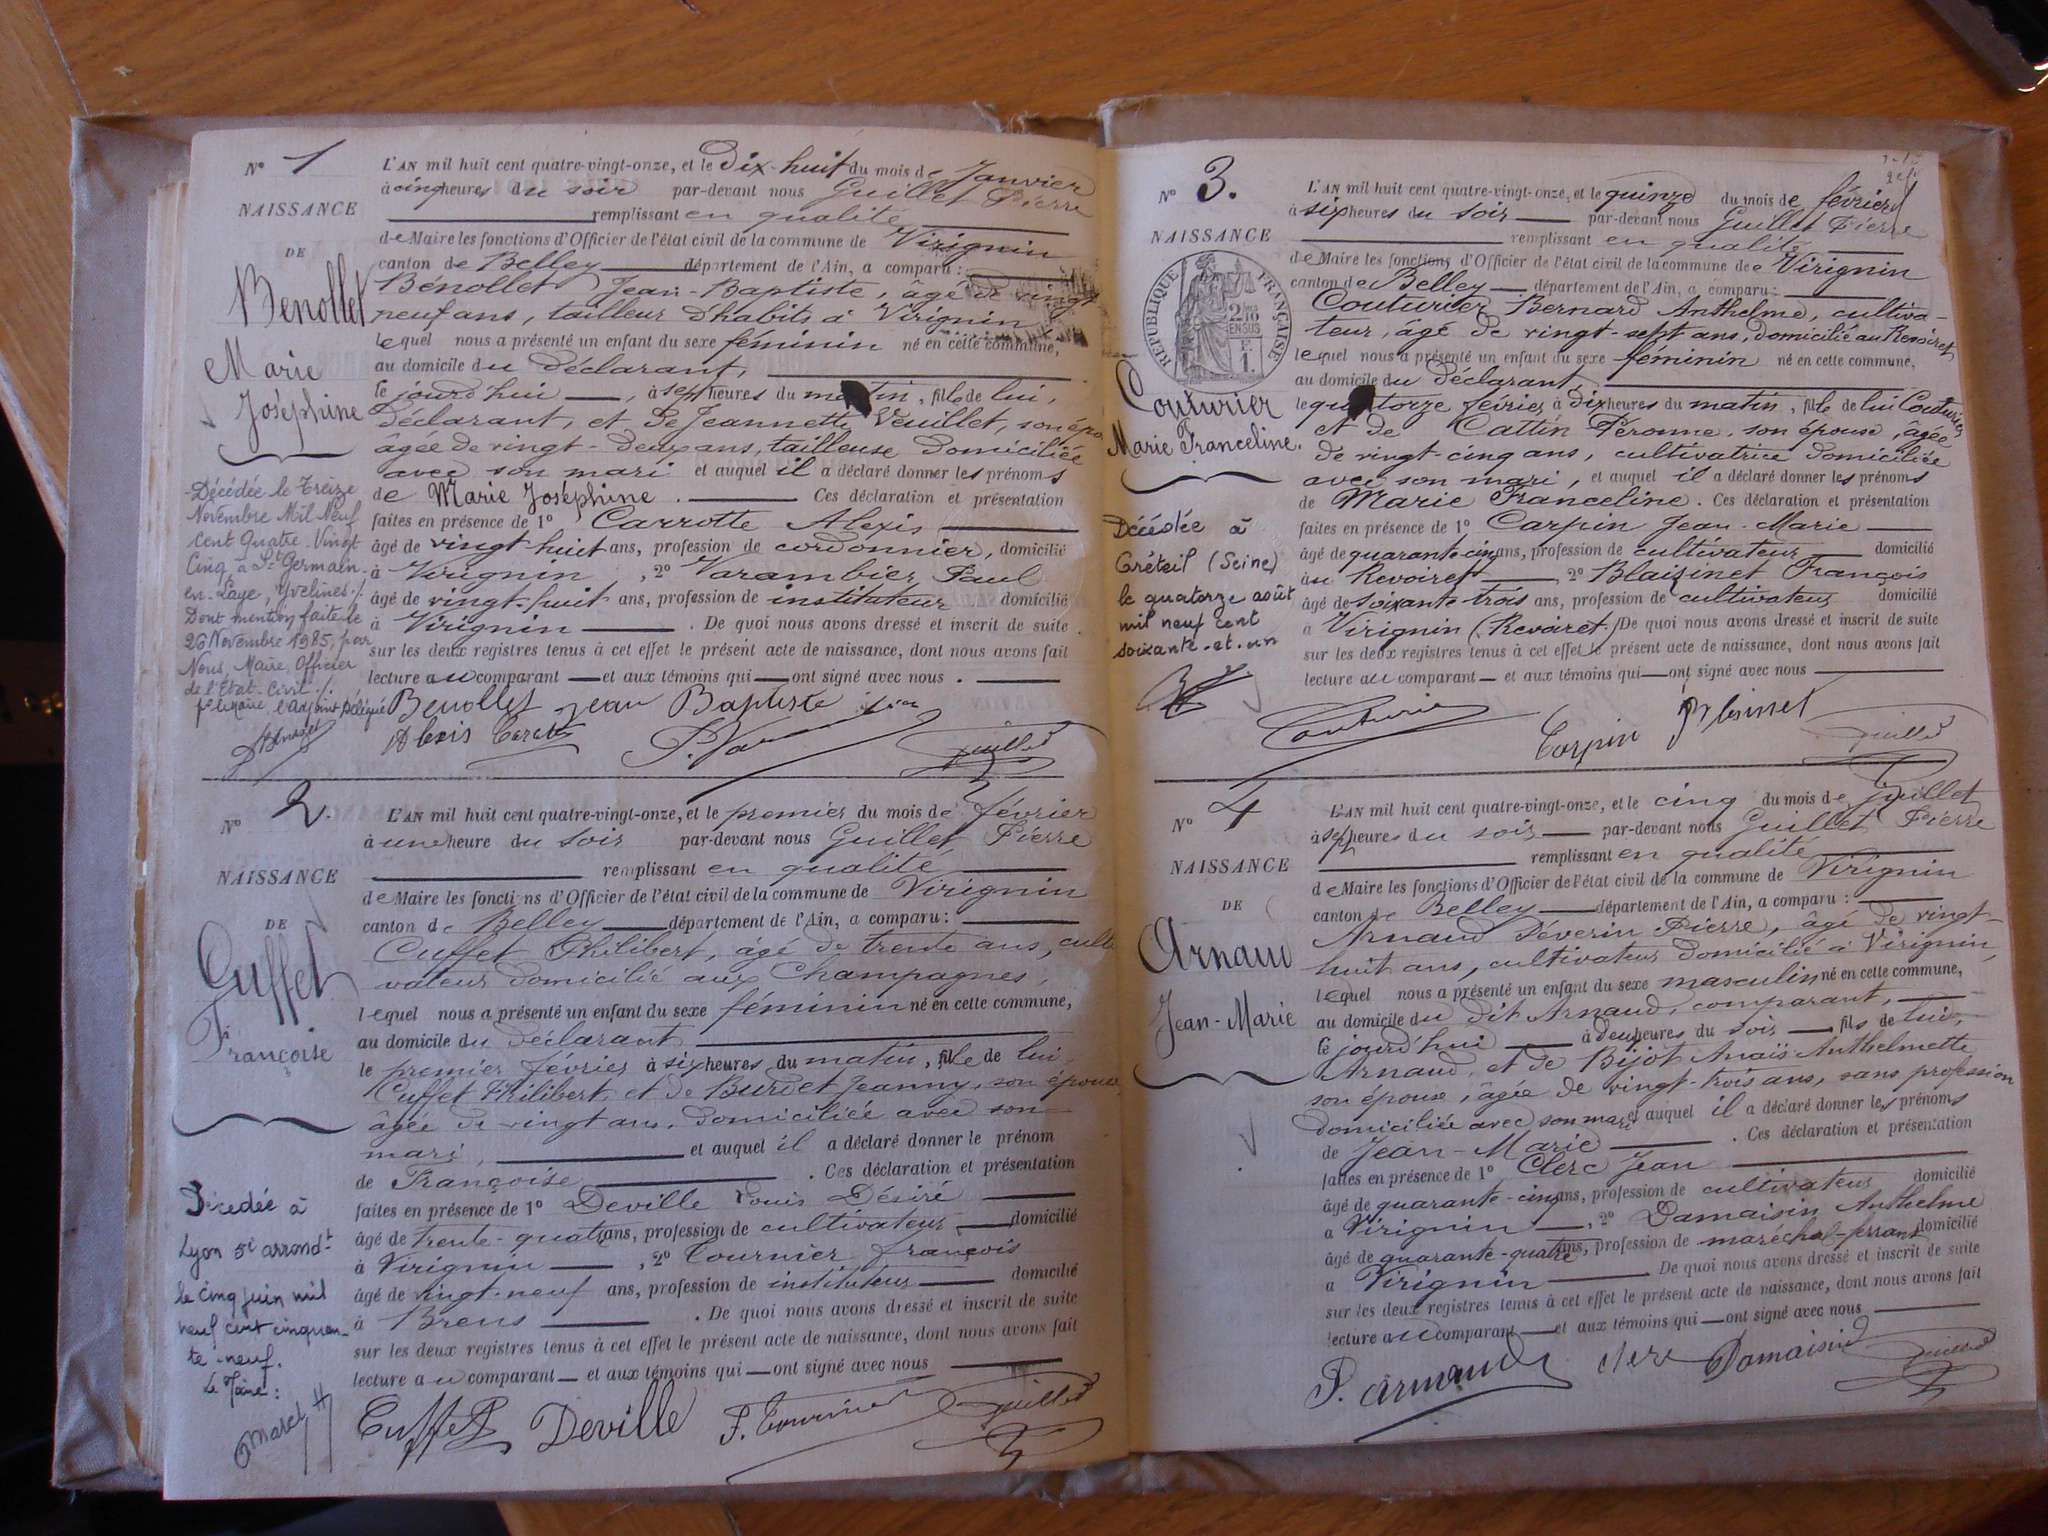 N° 1
NAISSANCE
DE
Benollet
Marie
Joséphine
Décédée le treize
Novembre Mil Neuf
Cent Quatre-Vingt
Cinq à St Germain-
en-Laye, Yvelines ./.
Dont mention faite le
26 Novembre 1985, par
Nous, Maire, Officier
de l'Etat-Civil ./.
l'Adjoint Délégué
L'AN mil huit cent quatre-vingt-onze, et le dix-huit du mois de Janvier
à cinq heures du soir par-devant nous Guillet Pierre
remplissant en qualité
de Maire les fonctions d'Officier de l'état civil de la commune de Virignin
canton de Belley département de l'Ain, a comparu :
Bénollet Jean-Baptiste, âgé de vingt
neuf ans, tailleur d'habits à Virignin
lequel nous a présenté un enfant du sexe féminin né en cette commune,
au domicile du déclarant,
le jourd'hui, à sept heures du matin, fille de lui,
déclarant, et de Jeannette Veuillet, son épo
âgée de vingt-deux ans, tailleuse domiciliée
avec son mari et auquel il a déclaré donner les prénoms
de Marie Joséphine. Ces déclaration et présentation
faites en présence de 1° Carrotte Alexis
âgé de vingt-huit ans, profession de cordonnier, domicilié
à Virignin, 2° Varambier Paul
âgé de vingt-huit ans, profession de instituteur domicilié
à Virignin. De quoi nous avons dressé et inscrit de suite
sur les deux registres tenus à cet effet le présent acte de naissance, dont nous avons fait
lecture au comparant et aux témoins qui ont signé avec nous.
Benollet Jean Baptiste
Alexis
Guillet
N° 2.
NAISSANCE
DE
Cuffet
Françoise
Décédée à
Lyon 5e arrondt
le cinq juin mil
neuf cent cinquan-
te-neuf.
Le Maire :
L'AN mil huit cent quatre-vingt-onze, et le premier du mois de février
à une heure du soir par-devant nous Guillet Pierre
remplissant en qualité
de Maire les fonctions d'Officier de l'état civil de la commune de Virignin
canton de Belley département de l'Ain, a comparu :
Cuffet Philibert, âgé de trente ans, culti
vateur domicilié aux Champagnes,
lequel nous a présenté un enfant du sexe féminin né en cette commune,
au domicile du déclarant
le premier février à six heures du matin, fille de lui
Cuffet Philibert, et de Burdet Jeanny, son épouse
âgée de vingt ans, domiciliée avec son
mari, et auquel il a déclaré donner le prénom
de Françoise. Ces déclaration et présentation
faites en présence de 1° Deville Louis Désiré
âgé de trente-quatre ans, profession de cultivateur domicilié
à Virignin, 2° Tournier François
âgé de vingt-neuf ans, profession de instituteur domicilié
à Brens. De quoi nous avons dressé et inscrit de suite
sur les deux registres tenus à cet effet le présent acte de naissance, dont nous avons fait
lecture au comparant et aux témoins qui ont signé avec nous
Cuffet Deville F. Tournier Guillet
N° 3.
NAISSANCE
RÉPUBLIQUE FRANÇAISE
2/10
EN SUS
1.
Couturier
Marie Franceline.
Décédée à
Créteil (Seine)
le quatorze août
mil neuf cent
soixante-et-un
L'AN mil huit cent quatre-vingt-onze, et le quinze du mois de février
à six heures du soir par-devant nous Guillet Pierre
remplissant en qualité
de Maire les fonctions d'Officier de l'état civil de la commune de Virignin
canton de Belley département de l'Ain, a comparu :
Couturier Bernard Anthelme, cultiva-
teur, âgé de vingt-sept ans, domicilié au Revoiret
lequel nous a présenté un enfant du sexe féminin né en cette commune,
au domicile du déclarant
le quatorze février à dix heures du matin, fille de lui Couturier
et de Cattin Péronne, son épouse, âgée
de vingt-cinq ans, cultivatrice domiciliée
avec son mari, et auquel il a déclaré donner les prénoms
de Marie Franceline. Ces déclaration et présentation
faites en présence de 1° Carpin Jean-Marie
âgé de quarante-cinq ans, profession de cultivateur domicilié
au Revoiret, 2° Blaisinet François
âgé de soixante-trois ans, profession de cultivateur domicilié
à Virignin (Revoiret.) De quoi nous avons dressé et inscrit de suite
sur les deux registres tenus à cet effet le présent acte de naissance, dont nous avons fait
lecture au comparant et aux témoins qui ont signé avec nous
Couturier Carpin Guillet
N° 4
NAISSANCE
DE
Arnaud
Jean-Marie
L'AN mil huit cent quatre-vingt-onze, et le cinq du mois de juillet
à sept heures du soir par-devant nous Guillet Pierre
remplissant en qualité
de Maire les fonctions d'Officier de l'état civil de la commune de Virignin
canton de Belley département de l'Ain, a comparu :
Arnaud Séverin Pierre, âgé de vingt-
huit ans, cultivateur domicilié à Virignin,
lequel nous a présenté un enfant du sexe masculin né en cette commune,
au domicile du dit Arnaud, comparant,
le jourd'hui à deux heures du soir fils de lui,
Arnaud, et de Bijot Anaïs Anthelmette
son épouse, âgée de vingt-trois ans, sans profession
domiciliée avec son mari et auquel il a déclaré donner les prénoms
de Jean-Marie. Ces déclaration et présentation
faites en présence de 1° Clerc Jean
âgé de quarante-cinq ans, profession de cultivateur domicilié
à Virignin, 2° Damaisin Anthelme
âgé de quarante-quatre ans, profession de maréchal-ferrant domicilié
à Virignin De quoi nous avons dressé et inscrit de suite
sur les deux registres tenus à cet effet le présent acte de naissance, dont nous avons fait
lecture au comparant et aux témoins qui ont signé avec nous
P. Arnaud Clerc Damaisin Guillet